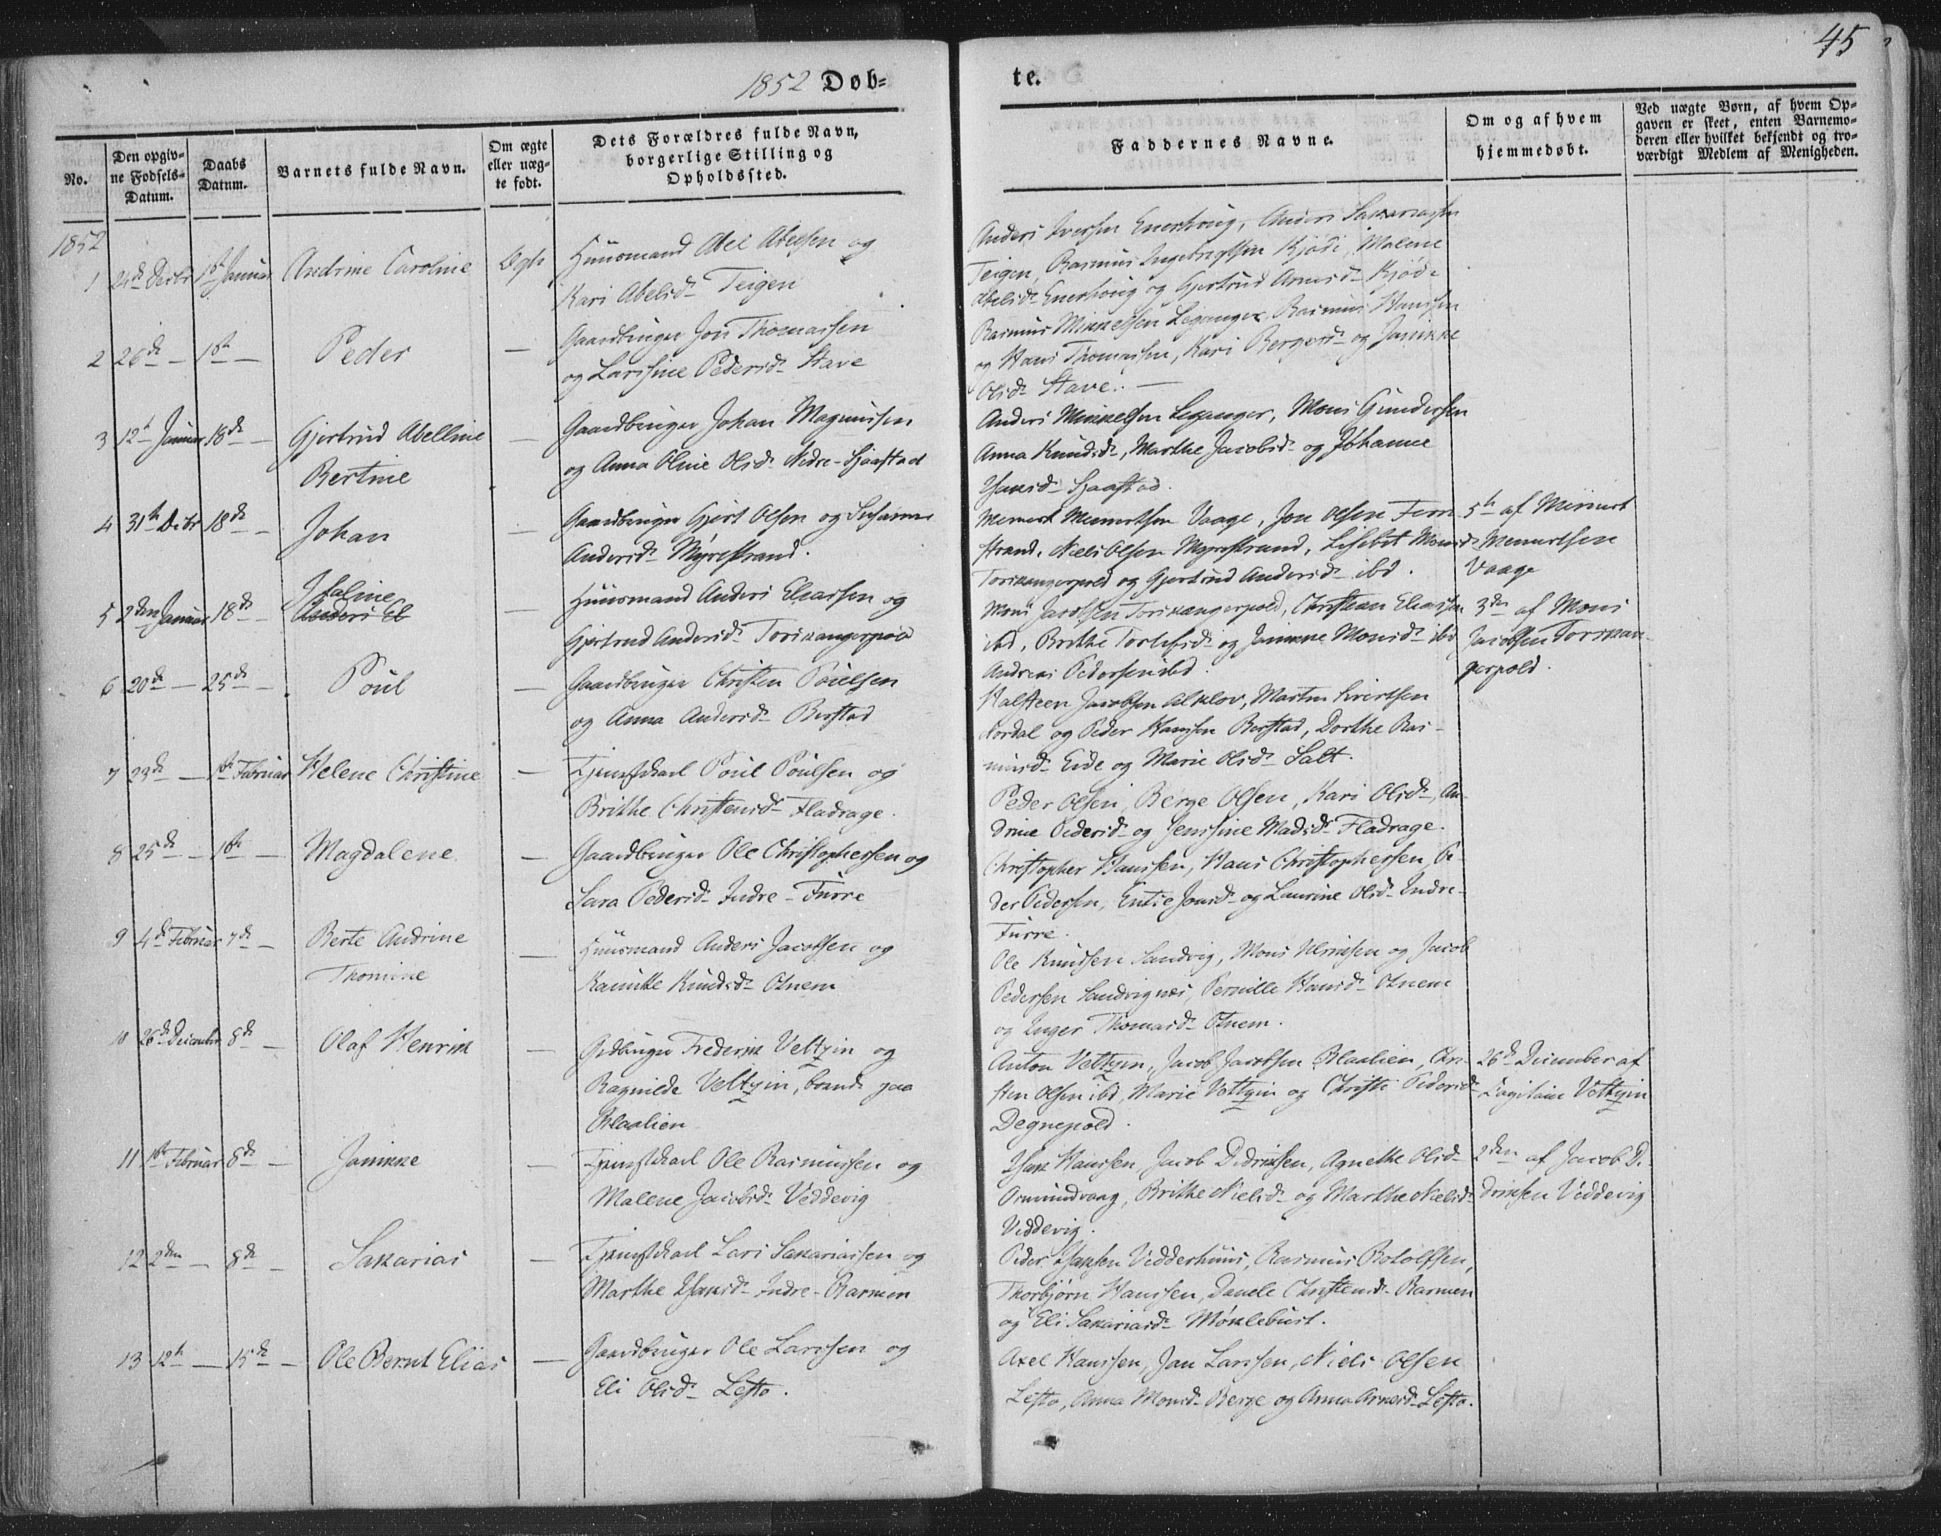 45
1852 Døb=
te.
No.
Den opgiv=
ne Fødsels=
Datum.
Daabs
Datum.
Barnets fulde Navn.
Om ægte
eller uæg=
te født.
Dets Forældres fulde Navn,
borgerlige Stilling og
Opholdssted.
Faddernes Navne.
Om og af hvem
hjemmedøbt.
Ved uægte Børn, af hvem Op=
gaven er skeet, enten Barnemo=
deren eller hvilket bekjendt og tro=
værdigt Medlem af Menigheden.
1852
1 24de Decbr 1ste Januar Andrine Caroline Ægte Huusmand Abel Abelsen og
Kari Abelsd. Teigen
Anders Iversen Enerhoug, Anders Sakariasen
Teigen, Rasmus Ingebrigtsen Kjøde, Malene
Abelsd. Enerhoug og Gjertrud Arnesd. Kjøde
2 26de — 1ste — Peder — Gaardbruger Jon Thomassen
og Larssine Pedersd. Stave
Rasmus Mikkelsen Leganger, Rasmus Hanssen
og Hans Thomassen, Kari Bergesd. og Janikke
Olsd. Stave. —
3 12te Januar 18de — Gjertrud Abelline
Bertine — Gaardbruger Johan Magnussen
og Anna Oline Olsd. Nedre-Hjaastad
Anders Mikkelsen Leganger, Mons Gundersen
Anna Knudsd., Marthe Jacobsd. og Johanne
Isaksd. Hjaastad.
4 31te Decbr 18de — Johan — Gaardbruger Gjert Olsen og Susanne
Andersd. Myrestrand.
Meinert Meinertsen Vaage, Jon Olsen
strand, Niels Olsen Myrestrand, Lisebet Monsd.
Torskangerpold og Gjertrud Andersd. ibd.
5te af Meinert
Meinertsen
Vaage
5 2den Januar 18de — Isaline
Anders El — Huusmand Anders Eliassen og
Gjertrud Andersd. Torskangerpold
Mons Jacobsen Torskangerpold, Christian Eliassen
ibd, Brithe Torlefsd. og Janikke Monsd. ibd
Andreas Pedersen ibd.
3de af Mons
Jacobsen Torskan-
gerpold.
6 20de — 25de — Poul — Gaardbruger Christen Poulsen
og Anna Andersd. Berstad
Halsteen Jacobsen Alklov, Martin Sivertsen
Nordal og Peder Hanssen Berstad, Dorthe Ras-
musd. Eide og Marie Olsd. Salt.
7 23de — 1ste Februar Helene Christine — Tjenestekarl Poul Poulsen og
Brithe Christensd. Fladrage.
Peder Olsen, Berge Olsen, Kari Olsd., An-
drine Pedersd. og Jenssine Madsd. Fladrage.
8 25de — 1ste — Magdalene — Gaardbruger Ole Christophersen og
Sara Pedersd. Indre-Furre
Christopher Hanssen, Hans Christophersen, Pe-
der Pedersen, Entie Jonsd. og Laurine Olsd. Indre-
Furre.
9 4de Februar 7de — Berte Andrine
Thomine — Huusmand Anders Jacobsen og
Karnille Knudsd. Otnem
Ole Knudsen Sandvig, Mons Ulriksen og Jacob
Pedersen Sandvignes, Pernille Hansd. Otnem
og Inger Thomasd. Otnem.
10 26de December 8de — Olaf Henrik — Gdbruger Frederik Veltzin og
Ragnilde Veltzin, boende paa
Blaalien
Anton Veltzin, Jacob Jacobsen Blaalien, Chri-
sten Olsen ibd, Marie Veltzin og Christi Pedersd.
Degnepold.
26de December af
Capitain Veltzin
11 1ste Februar 8de — Janikke — Tjenestekarl Ole Rasmussen og
Malene Jacobsd. Veddevig
Isak Hanssen, Jacob Didriksen, Agnethe Olsd.
Osmundvaag, Brithe Nielsd. og Marthe Nielsd.
Veddevig.
2den af Jacob Di-
driksen Veddevig
12 2den — 8de — Sakarias — Tjenestekarl Lars Sakariassen og
Marthe Isaksd. Indre-Barmen
Peder Isaksen Vedderhuus, Rasmus Botolfsen,
Thorbjørn Hanssen, Danele Christensd. Barmen
og Eli Sakariasd. Møkleburst.
13 12te — 15de — Ole Bernt Elias — Gaardbruger Ole Larssen og
Eli Olsd. Lesto.
Axel Hanssen, Jan Larssen, Niels Olsen
Lesto, Anna Monsd. Berge og Anna Arnesd. Lesto.